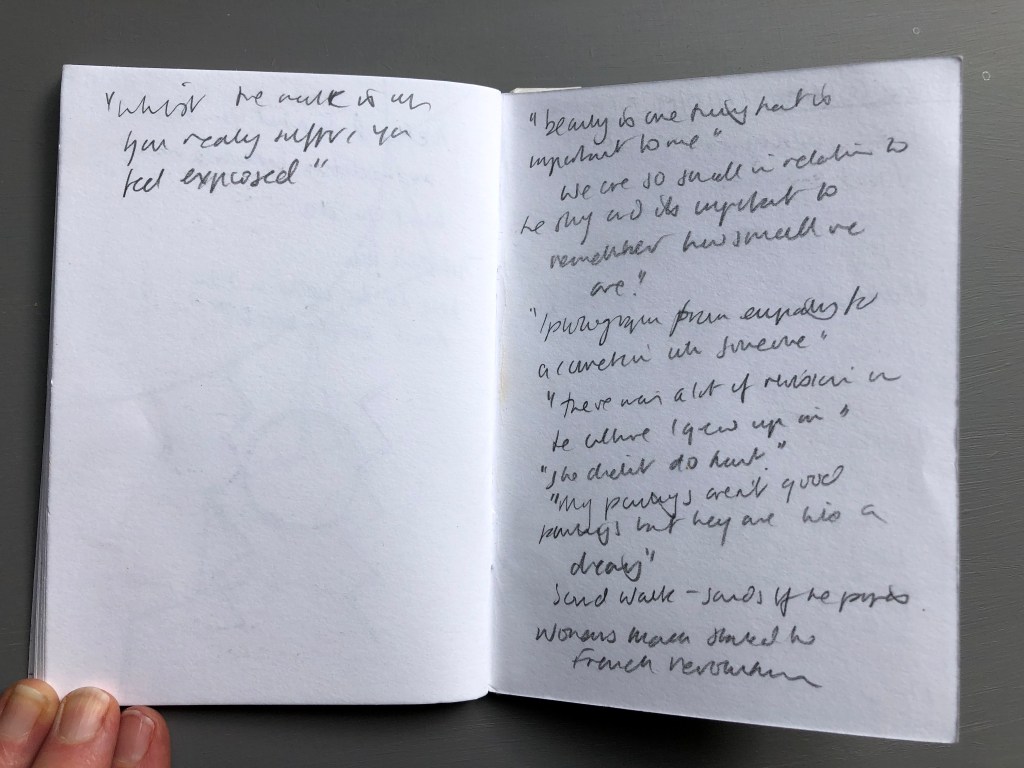 "whilst the walk is on
you really suffer, you
feel exposed"
"beauty is one thing that is
important to me"
we are so small in relation to
the sky and its important to
remember how small we
are."
"I photograph from empathy to
a connection with someone"
"there was a lot of revision in
the culture I grew up in"
"she didn't do hurt"
"My paintings aren't good
paintings but they are into a
"
Sound Walk – sounds of the
Womens march started the
French revolution